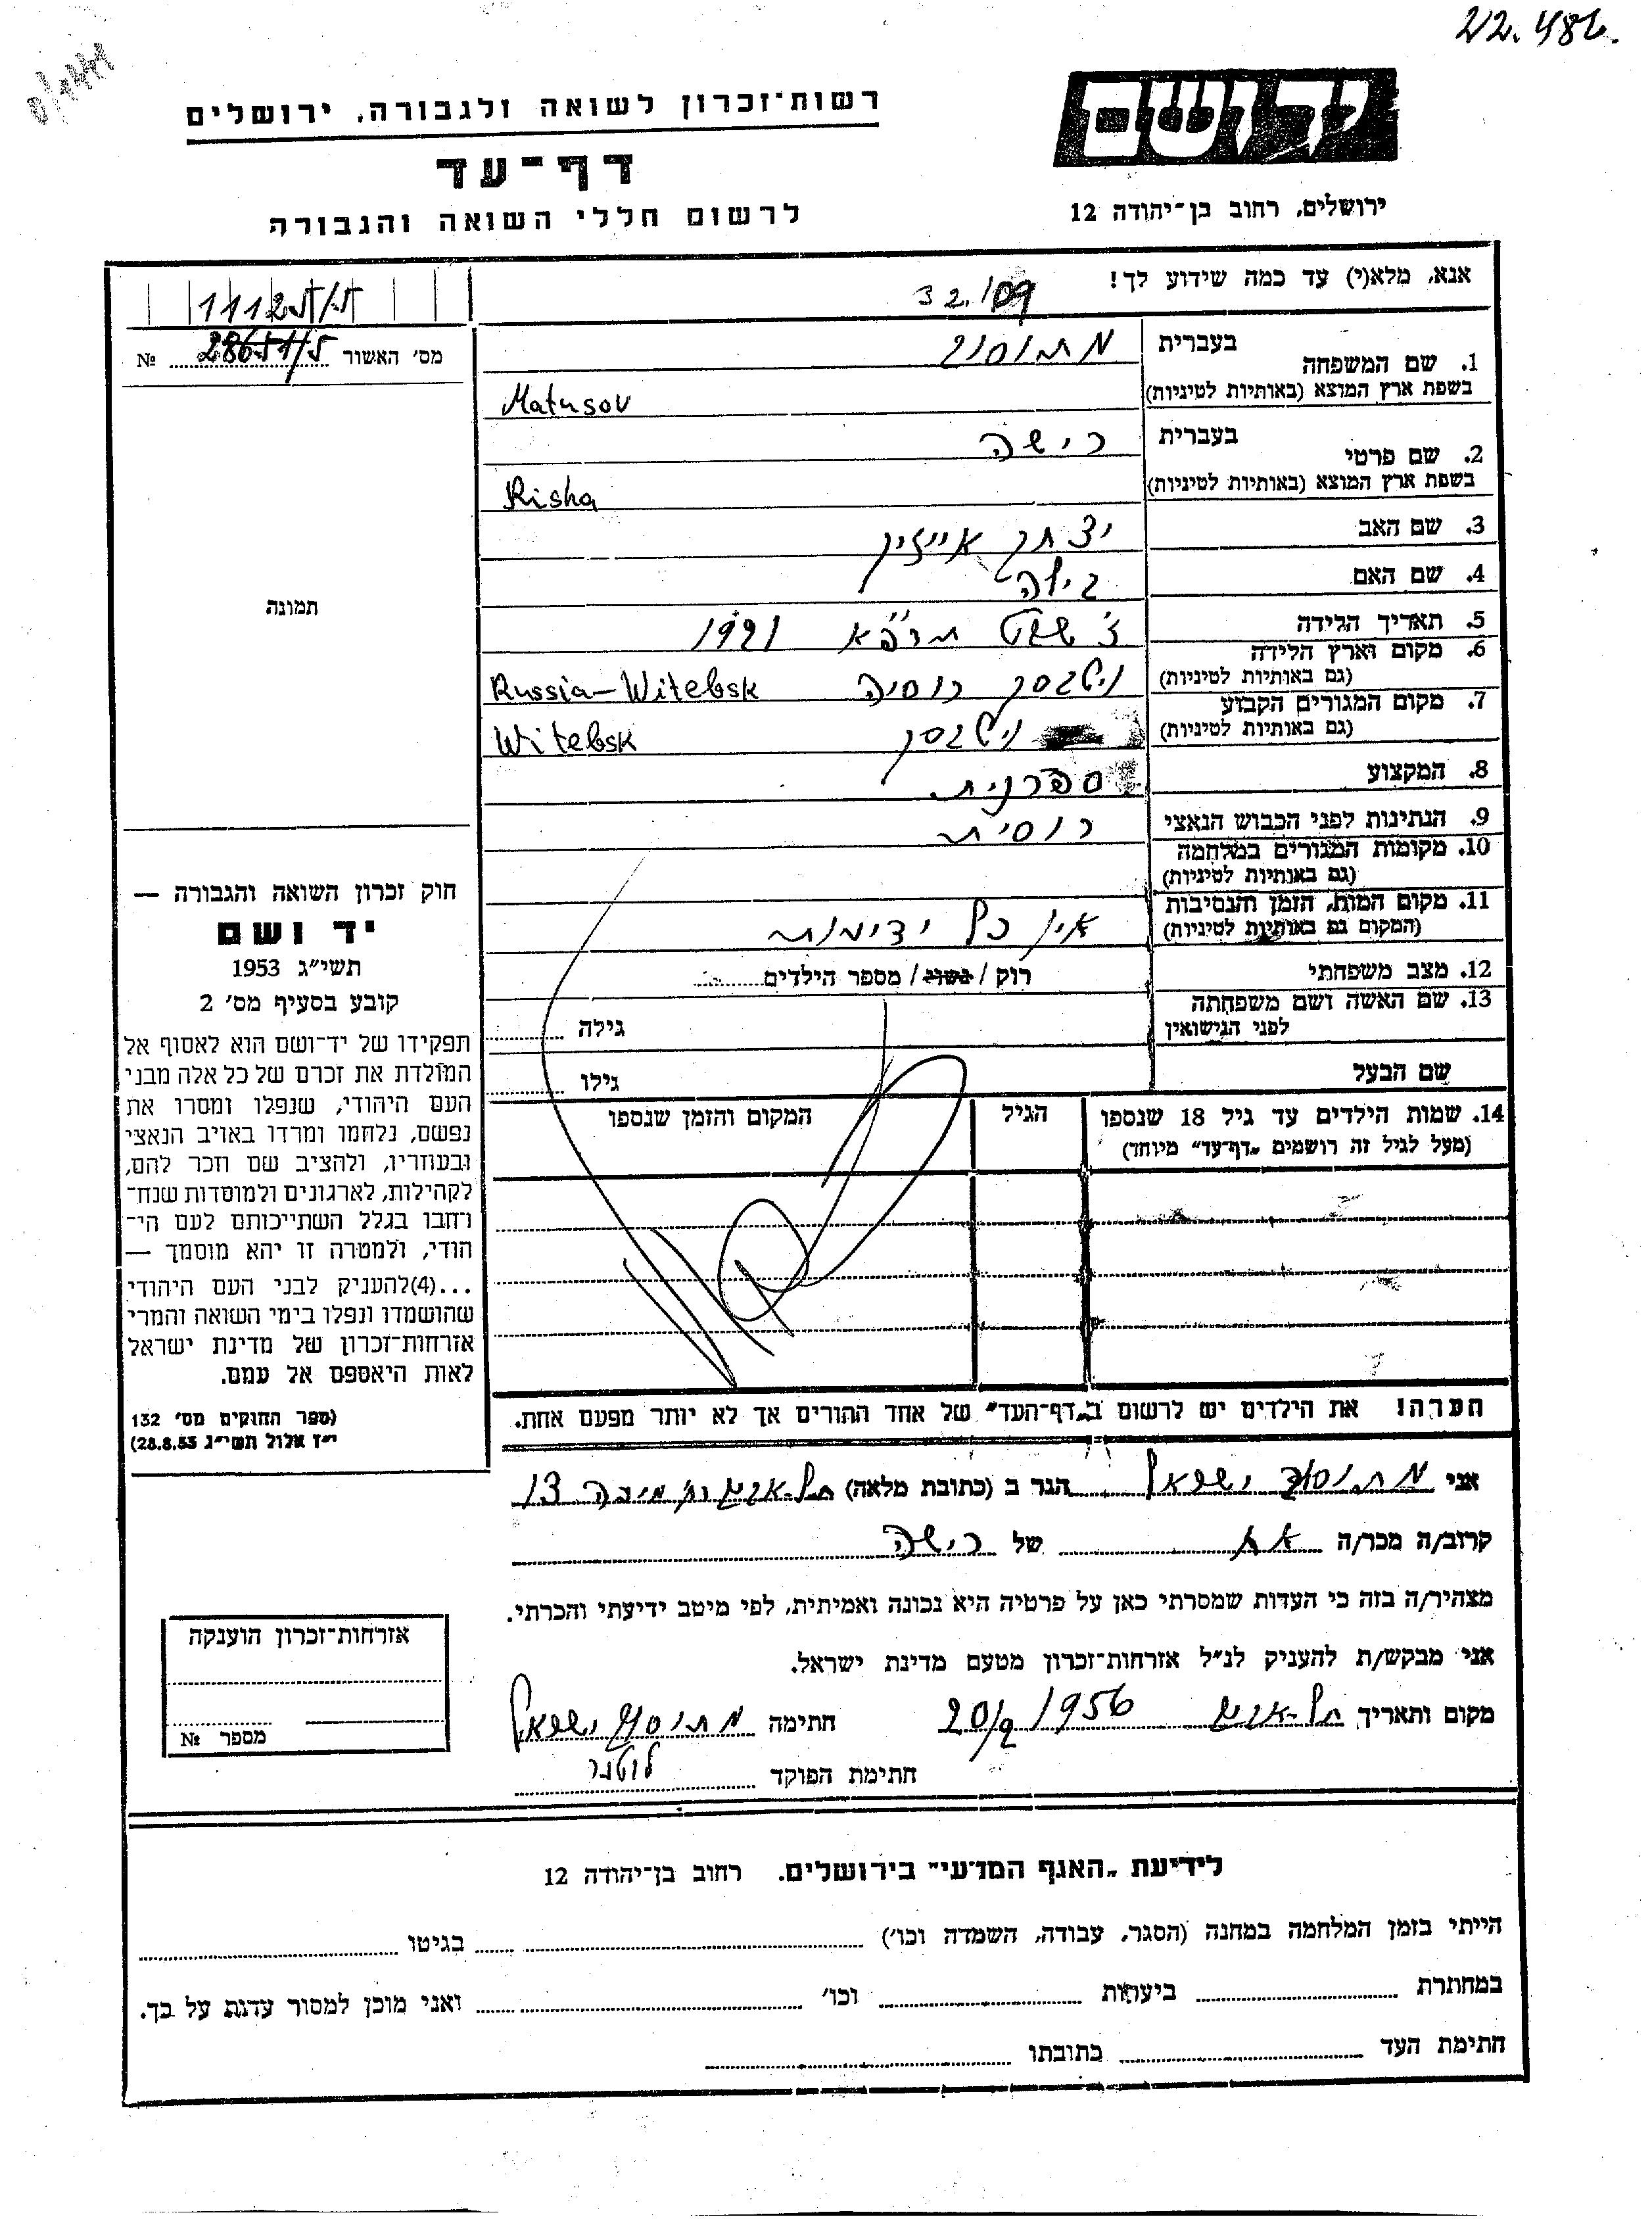 22.486.
רשות־זכרון לשואה ולגבורה, ירושלים
דף־עד
לרשום חללי השואה והגבורה
יד ושם
ירושלים, רחוב בן־יהודה 12
אנא, מלא(י) עד כמה שידוע לך!
32.109
1112 ת/ת
מס׳ האשור 28651/5 №
תמונה
1. שם המשפחה בעברית מתוסוב
בשפת ארץ המוצא (באותיות לטיניות) Matusov
2. שם פרטי בעברית רישה
בשפת ארץ המוצא (באותיות לטיניות) Risha
3. שם האב יצחק אייזיק
4. שם האם בילה
5. תאריך הלידה ז׳ שבט תרפ״א 1921
6. מקום וארץ הלידה (גם באותיות לטיניות) ויטבסק רוסיה Russia-Witebsk
7. מקום המגורים הקבוע (גם באותיות לטיניות) ויטבסק Witebsk
8. המקצוע ספרנית
9. הנתינות לפני הכבוש הנאצי רוסית
10. מקומות המגורים במלחמה (גם באותיות לטיניות)
11. מקום המות, הזמן והנסיבות (המקום גם באותיות לטיניות) אין כל ידיעות
12. מצב משפחתי רוק / נשוי / מספר הילדים
13. שם האשה ושם משפחתה לפני הנישואין גילה
שם הבעל גילו
14. שמות הילדים עד גיל 18 שנספו (מעל לגיל זה רושמים „דף־עד" מיוחד) הגיל המקום והזמן שנספו
חוק זכרון השואה והגבורה —
יד ושם
תשי״ג 1953
קובע בסעיף מס׳ 2
תפקידו של יד־ושם הוא לאסוף אל
המולדת את זכרם של כל אלה מבני
העם היהודי, שנפלו ומסרו את
נפשם, נלחמו ומרדו באויב הנאצי
ובעוזריו, ולהציב שם וזכר להם,
לקהילות, לארגונים ולמוסדות שנח־
רחבו בגלל השתייכותם לעם הי־
הודי, ולמטרה זו יהא מוסמך —
...(4) להעניק לבני העם היהודי
שהושמדו ונפלו בימי השואה והמרי
אזרחות־זכרון של מדינת ישראל
לאות היאספם אל עמם.
(ספר החוקים מס׳ 132
י״ז אלול תשי״ג 28.8.53)
הערה! את הילדים יש לרשום ב„דף־העד" של אחד ההורים אך לא יותר מפעם אחת.
אני מתוסוב ישראל הגר ב (כתובת מלאה) תל-אביב רח׳ מיכה 13
קרוב/ה מכר/ה אח של רישה
מצהיר/ה בזה כי העדות שמסרתי כאן על פרטיה היא נכונה ואמיתית, לפי מיטב ידיעתי והכרתי.
אני מבקש/ת להעניק לנ״ל אזרחות־זכרון מטעם מדינת ישראל.
מקום ותאריך תל-אביב 20/9 1956 חתימה מתוסוב ישראל
חתימת הפוקד
אזרחות־זכרון הוענקה
מספר №
לידיעת „האגף המדעי" בירושלים. רחוב בן־יהודה 12
הייתי בזמן המלחמה במחנה (הסגר, עבודה, השמדה וכו׳) בגיטו
במחתרת ביערות וכו׳ ואני מוכן למסור עדות על כך.
חתימת העד כתובתו